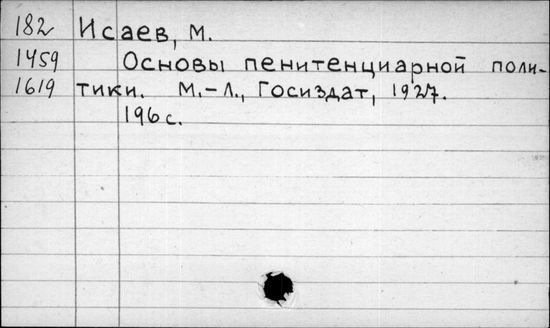 182 Исаев, М.
1459 Основы пенитенциарной поли-
1619 тики. М.-Л., Госиздат, 1927.
196 с.